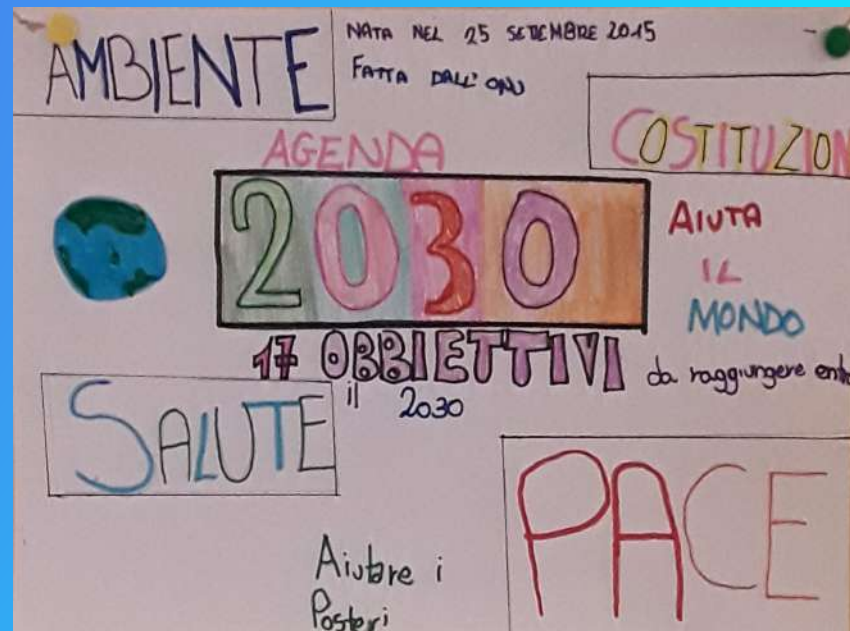 AMBIENTE
NATA NEL 25 SETTEMBRE 2015
FATTA DALL'ONU
COSTITUZION
AGENDA
2030
AIUTA
IL
MONDO
17 OBBIETTIVI da raggiungere entro
il 2030
SALUTE
PACE
Aiutare i
Posteri